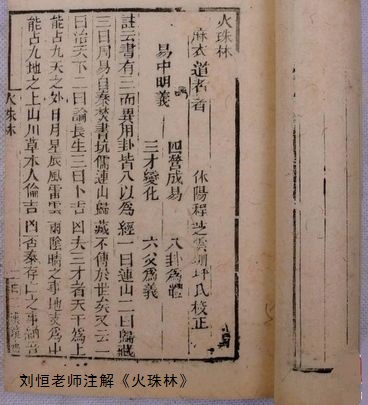 火珠林
麻衣道者著 休陽程芝雲珊坪氏校正
四營成易 八卦為體
易中明義
三才變化 六爻為義
註云書有三而異用卦皆八以為經一曰連山二曰歸藏
三曰周易自秦焚書坑儒連山歸藏不傳於世矣又云一
曰治天下二曰論長生三曰卜吉凶夫三才者天干為上
能占九天之外日月星辰風雷雲雨陰晴之事地支為中
能占九地之上山川草木人倫吉凶否泰存亡之事納音
火珠林
刘恒老师注解《火珠林》